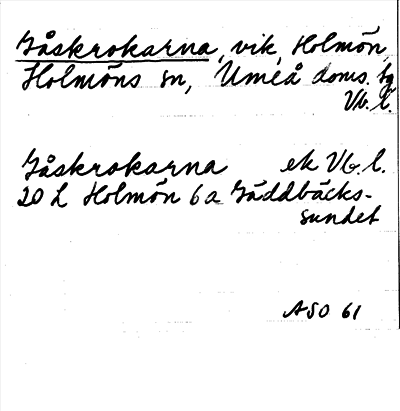 Gåskrokarna, vik, Holmön,
Holmöns sn, Umeå doms. tg
Vb. l.
Gåskrokarna ek Vb. l.
20 L Holmön 6 a Gäddbäcks-
sundet
ASO 61